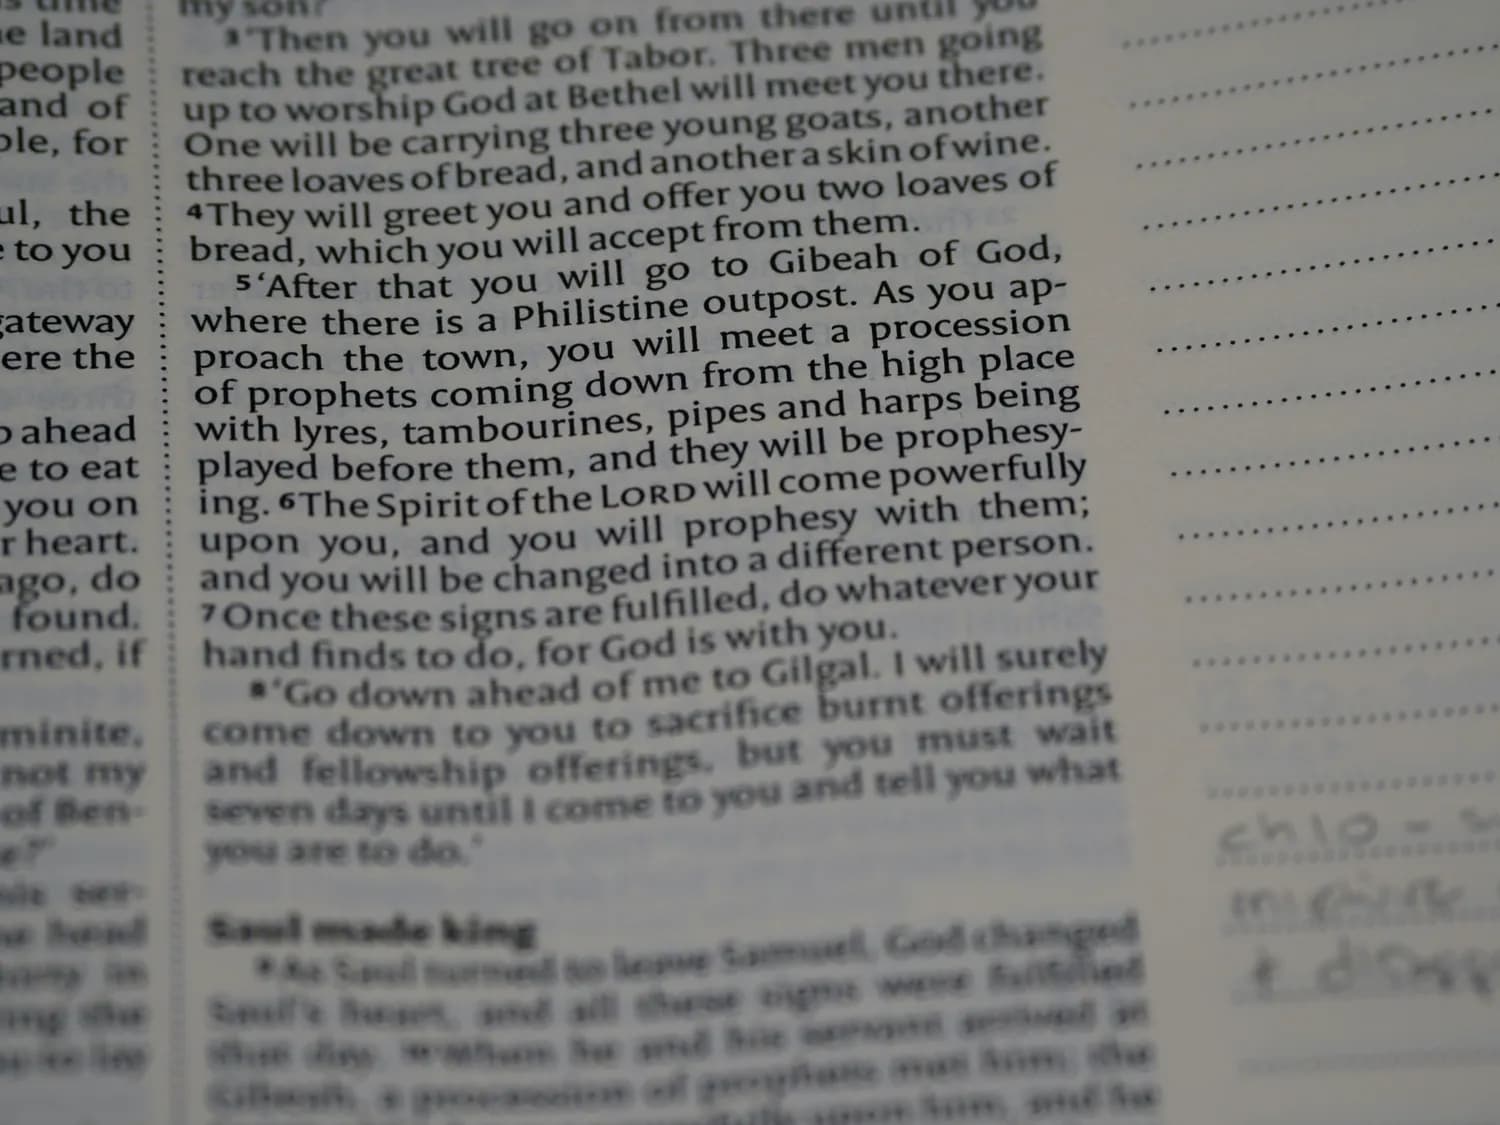 e land
people
and of
ple, for
ul, the
to you
gateway
ere the
ahead
e to eat
you on
r heart.
ago, do
found.
rned, if
minite,
not my
of Ben-
my son?
3'Then you will go on from there until you
reach the great tree of Tabor. Three men going
up to worship God at Bethel will meet you there.
One will be carrying three young goats, another
three loaves of bread, and another a skin of wine.
4They will greet you and offer you two loaves of
bread, which you will accept from them.
5'After that you will go to Gibeah of God,
where there is a Philistine outpost. As you ap-
proach the town, you will meet a procession
of prophets coming down from the high place
with lyres, tambourines, pipes and harps being
played before them, and they will be prophesy-
ing. 6The Spirit of the LORD will come powerfully
upon you, and you will prophesy with them;
and you will be changed into a different person.
7Once these signs are fulfilled, do whatever your
hand finds to do, for God is with you.
8'Go down ahead of me to Gilgal. I will surely
come down to you to sacrifice burnt offerings
and fellowship offerings, but you must wait
seven days until I come to you and tell you what
you are to do.'
Saul made king
9As Saul turned to leave Samuel, God changed
Saul's heart, and all these signs were fulfilled
that day. 10When he and his servant arrived at
Gibeah, a procession of prophets met him; the
upon him, and he
ch10 -